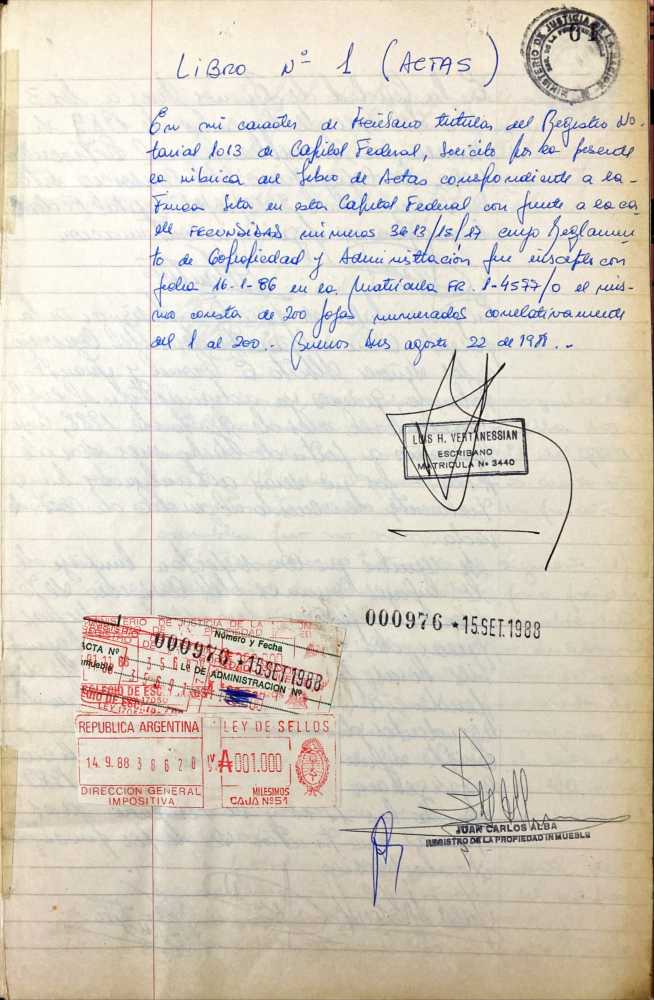 LIBRO Nº 1 (ACTAS)
MINISTERIO DE JUSTICIA DE LA
En mi caracter de Escribano titular del Registro No-
tarial 1013 de Capital Federal, Solicito por la presente
la rúbrica del Libro de Actas correspondiente a la
Finca Sita en esta Capital Federal con frente a la ca-
lle FECUNDIDAD números 3613/15/17 cuyo Reglamen-
to de Copropiedad y Administración fue inscripto con
fecha 16-1-86 en la Matrícula FR. 1-4577/0 el mis-
mo consta de 200 fojas numeradas correlativamente
del 1 al 200.- Buenos Aires agosto 22 de 1988.-
LUIS H. VERTANESSIAN
ESCRIBANO
MATRICULA Nº 3440
000976 ★ 15.SET.1988
MINISTERIO DE JUSTICIA DE LA
Número y Fecha
000976 ★ 15.SET.1988
ACTA Nº
Lº DE ADMINISTRACION Nº
COLEGIO DE ESC.
REPUBLICA ARGENTINA
LEY DE SELLOS
14.9.88 3 6 6 2 8
A001.000
MILESIMOS
DIRECCION GENERAL
IMPOSITIVA
CAJA Nº51
JUAN CARLOS ALBA
REGISTRO DE LA PROPIEDAD INMUEBLE